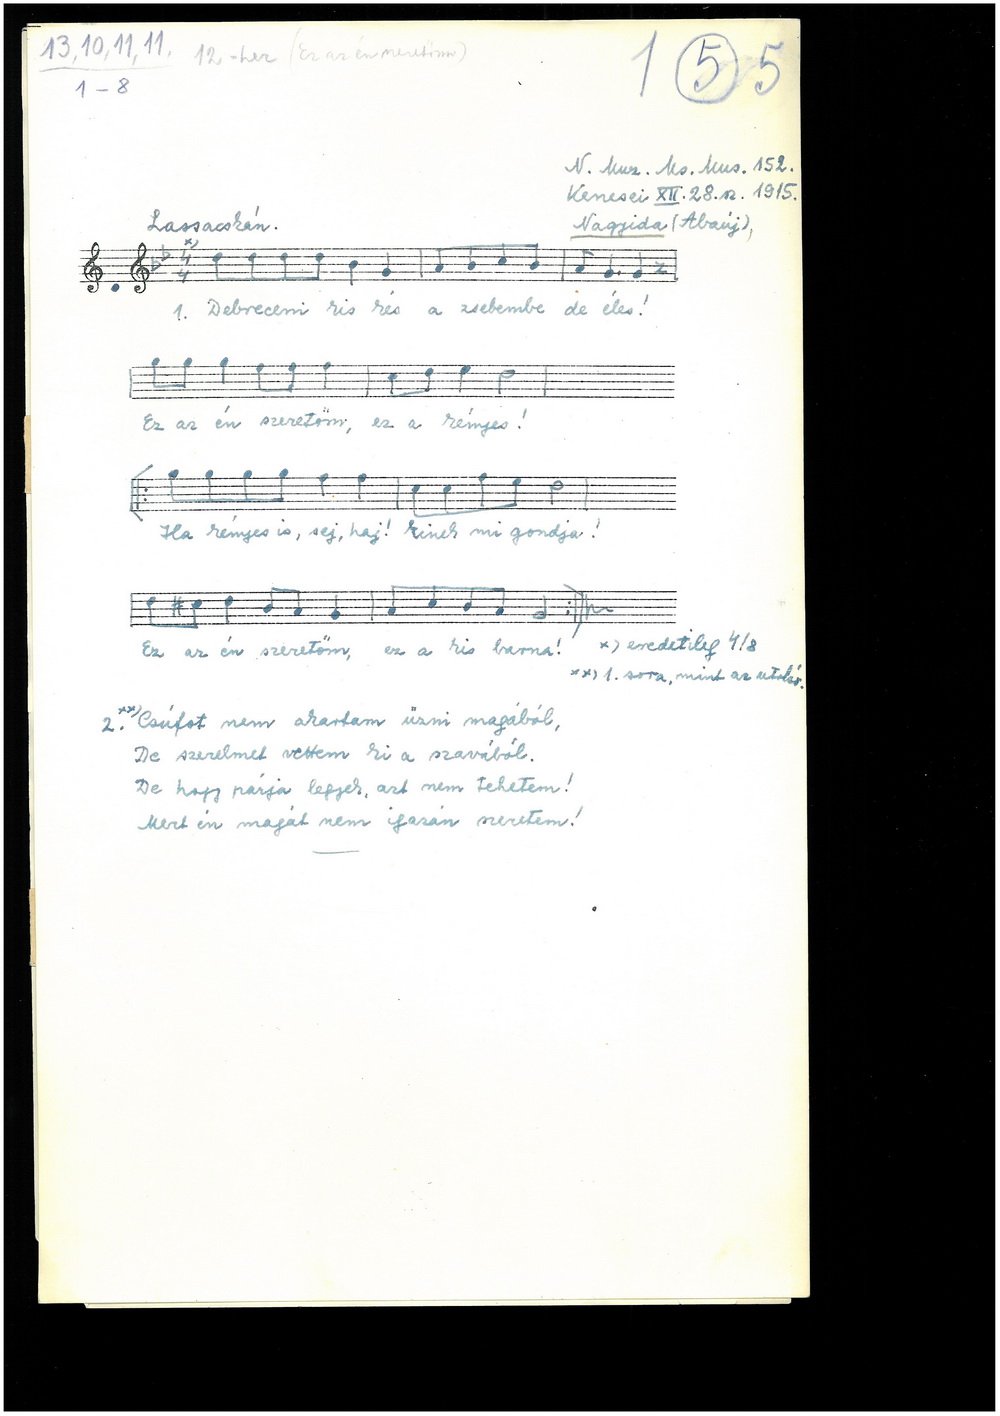 13, 10, 11, 11. 12.-hez (Ez az én szeretőm) 1 5 5
1 – 8
N. Muz. Ms. Mus. 152.
Kenesei XII. 28. sz. 1915.
Lassacskán. Nagyida (Abaúj),
x)
4
4
1. Debreceni kis kés a zsebembe de éles!
Ez az én szeretőm, ez a kényes!
Ha kényes is, sej, haj! kinek mi gondja!
Ez az én szeretőm, ez a kis barna! x) eredetileg 4/8
xx) 1. sora, mint az utolsó.
2. xx) Csúfot nem akartam űzni magából,
De szerelmet vettem ki a szavából.
De hogy párja legyek, azt nem tehetem!
Mert én magát nem igazán szeretem!